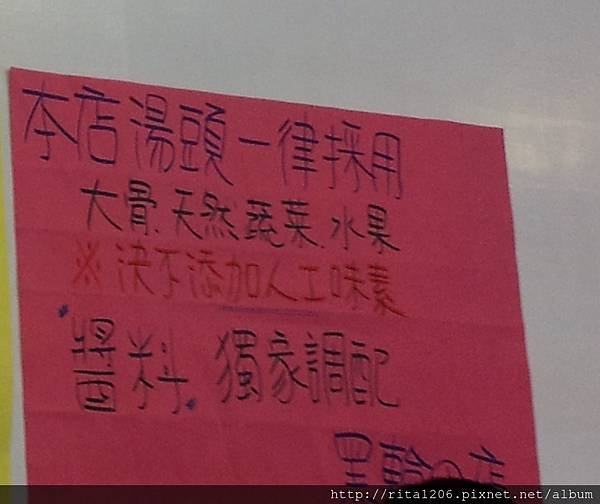 本店湯頭一律採用
大骨.天然蔬菜.水果
※決不添加人工味素
醬料.獨家調配
黑輪の店
http://rita1206.pixnet.net/album